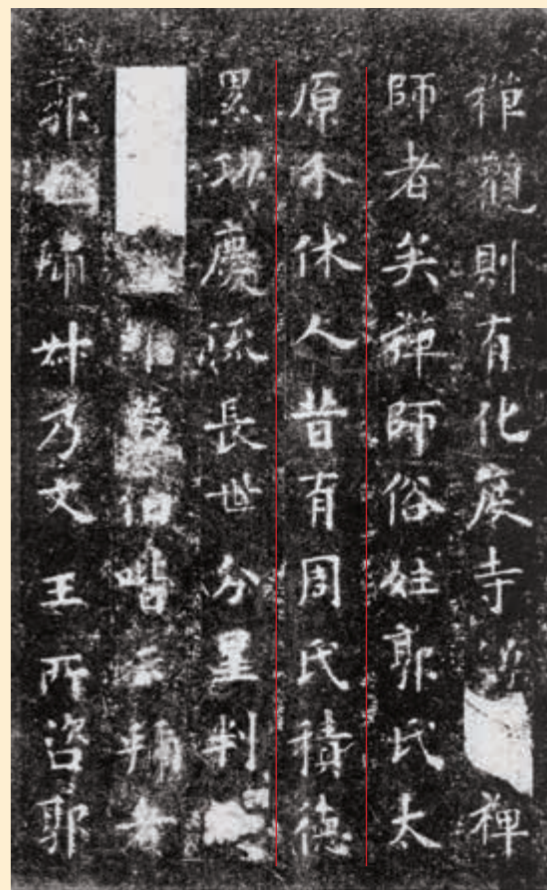 禪觀則有化度寺禪
師者矣禪師俗姓郭氏太
原介休人昔有周氏積德
累功慶流長世分星判
蔡伯喈云虢者
郭也虢叔乃文王所咨郭